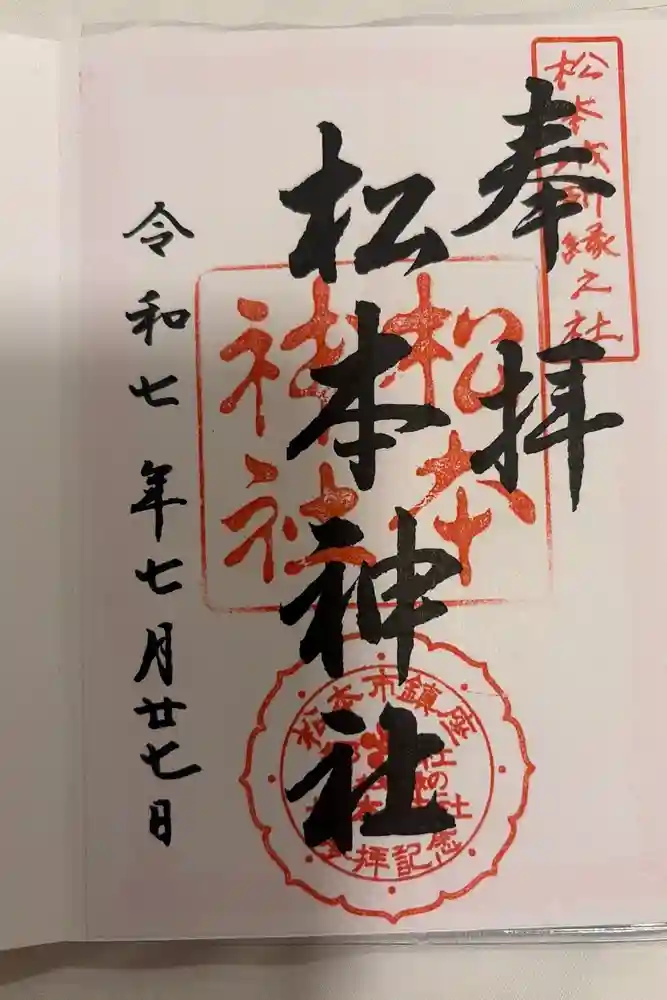 松本城所縁之社
奉拝
松本神社
松本
神社
松本市鎮座
参拝記念
令和七年七月廿七日